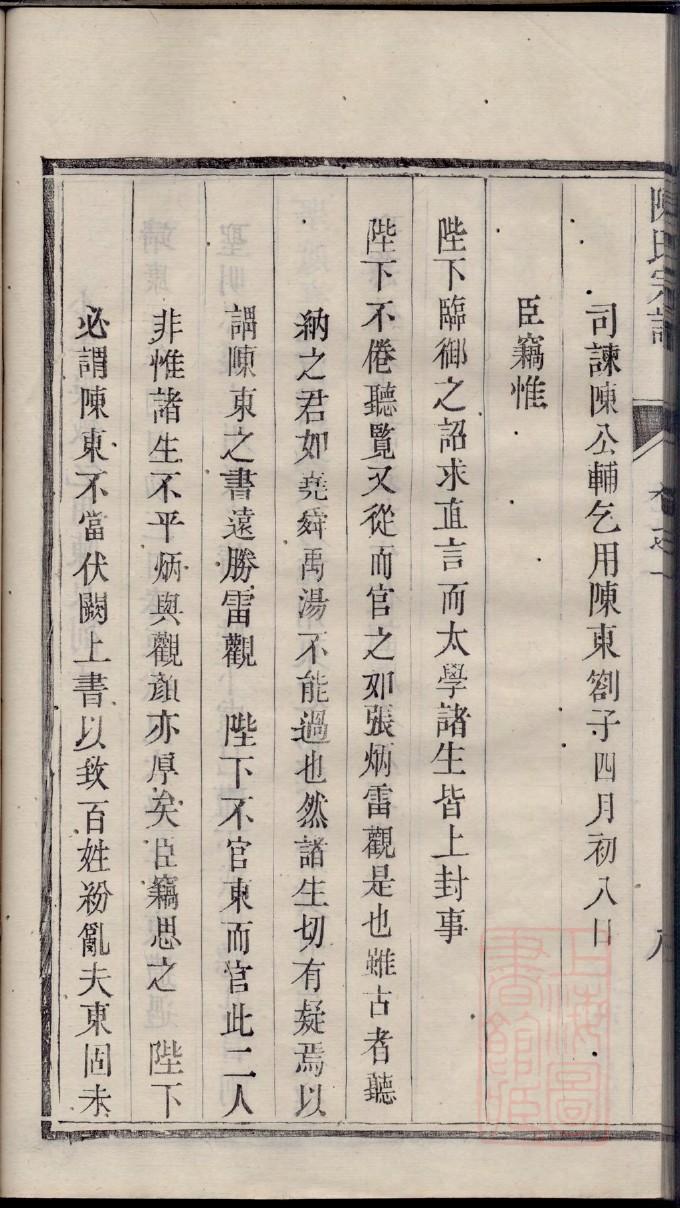 陳氏宗譜
卷之一
司諫陳公輔乞用陳東劄子四月初八日
臣竊惟
陛下臨御之詔求直言而太學諸生皆上封事
陛下不倦聽覽又從而官之如張炳雷觀是也雖古者聽
納之君如堯舜禹湯不能過也然諸生切有疑焉以
謂陳東之書遠勝雷觀　陛下不官東而官此二人
非惟諸生不平炳與觀顏亦厚矣臣竊思之　陛下
必謂陳東不當伏闕上書以致百姓紛亂夫東固未
上海圖書館藏